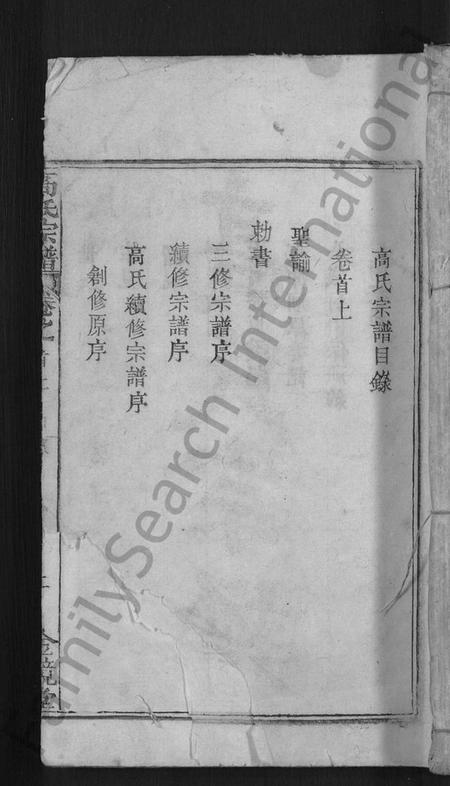 高氏宗譜目錄
卷首上
聖諭
勅書
三修宗譜序
續修宗譜序
高氏續修宗譜序
創修原序
高氏宗譜
卷之首
FamilySearch International